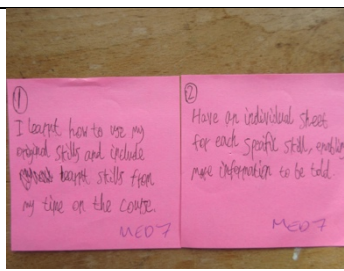 1
I learnt how to use my
original skills and include
learnt skills from
my time on the course.
MED7
2
Have an individual sheet
for each specifit skill, enabling
more information to be told.
MED7